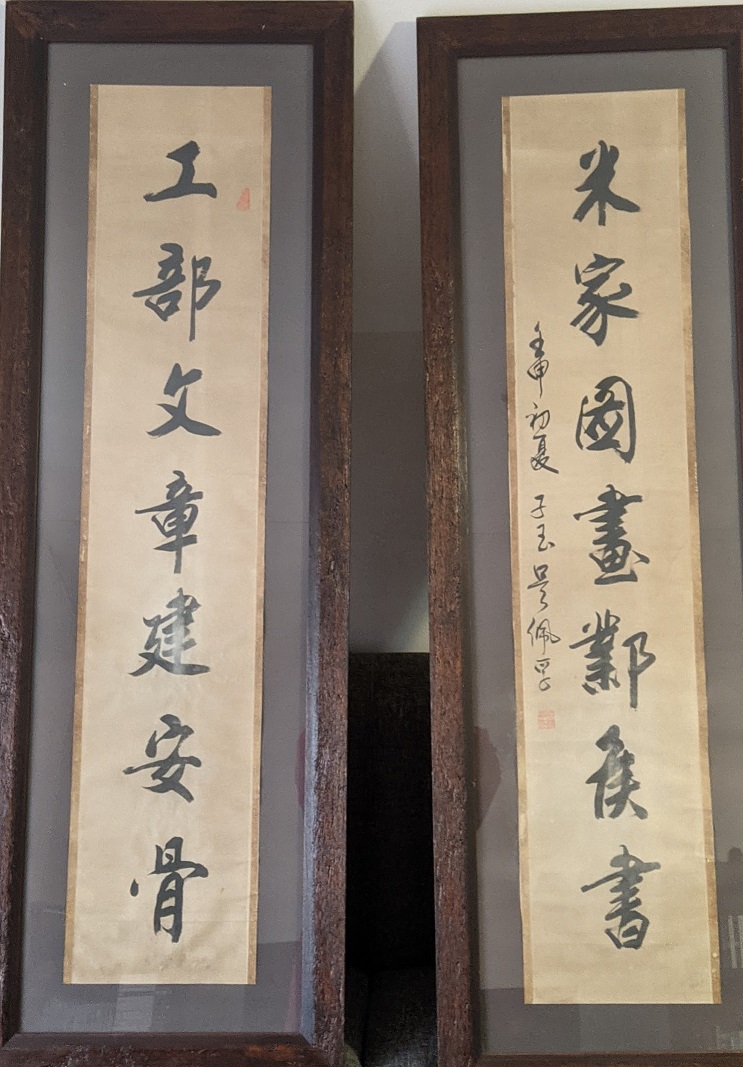 工部文章建安骨
米家圖畫鄴侯書
壬申初夏 子玉吳佩孚